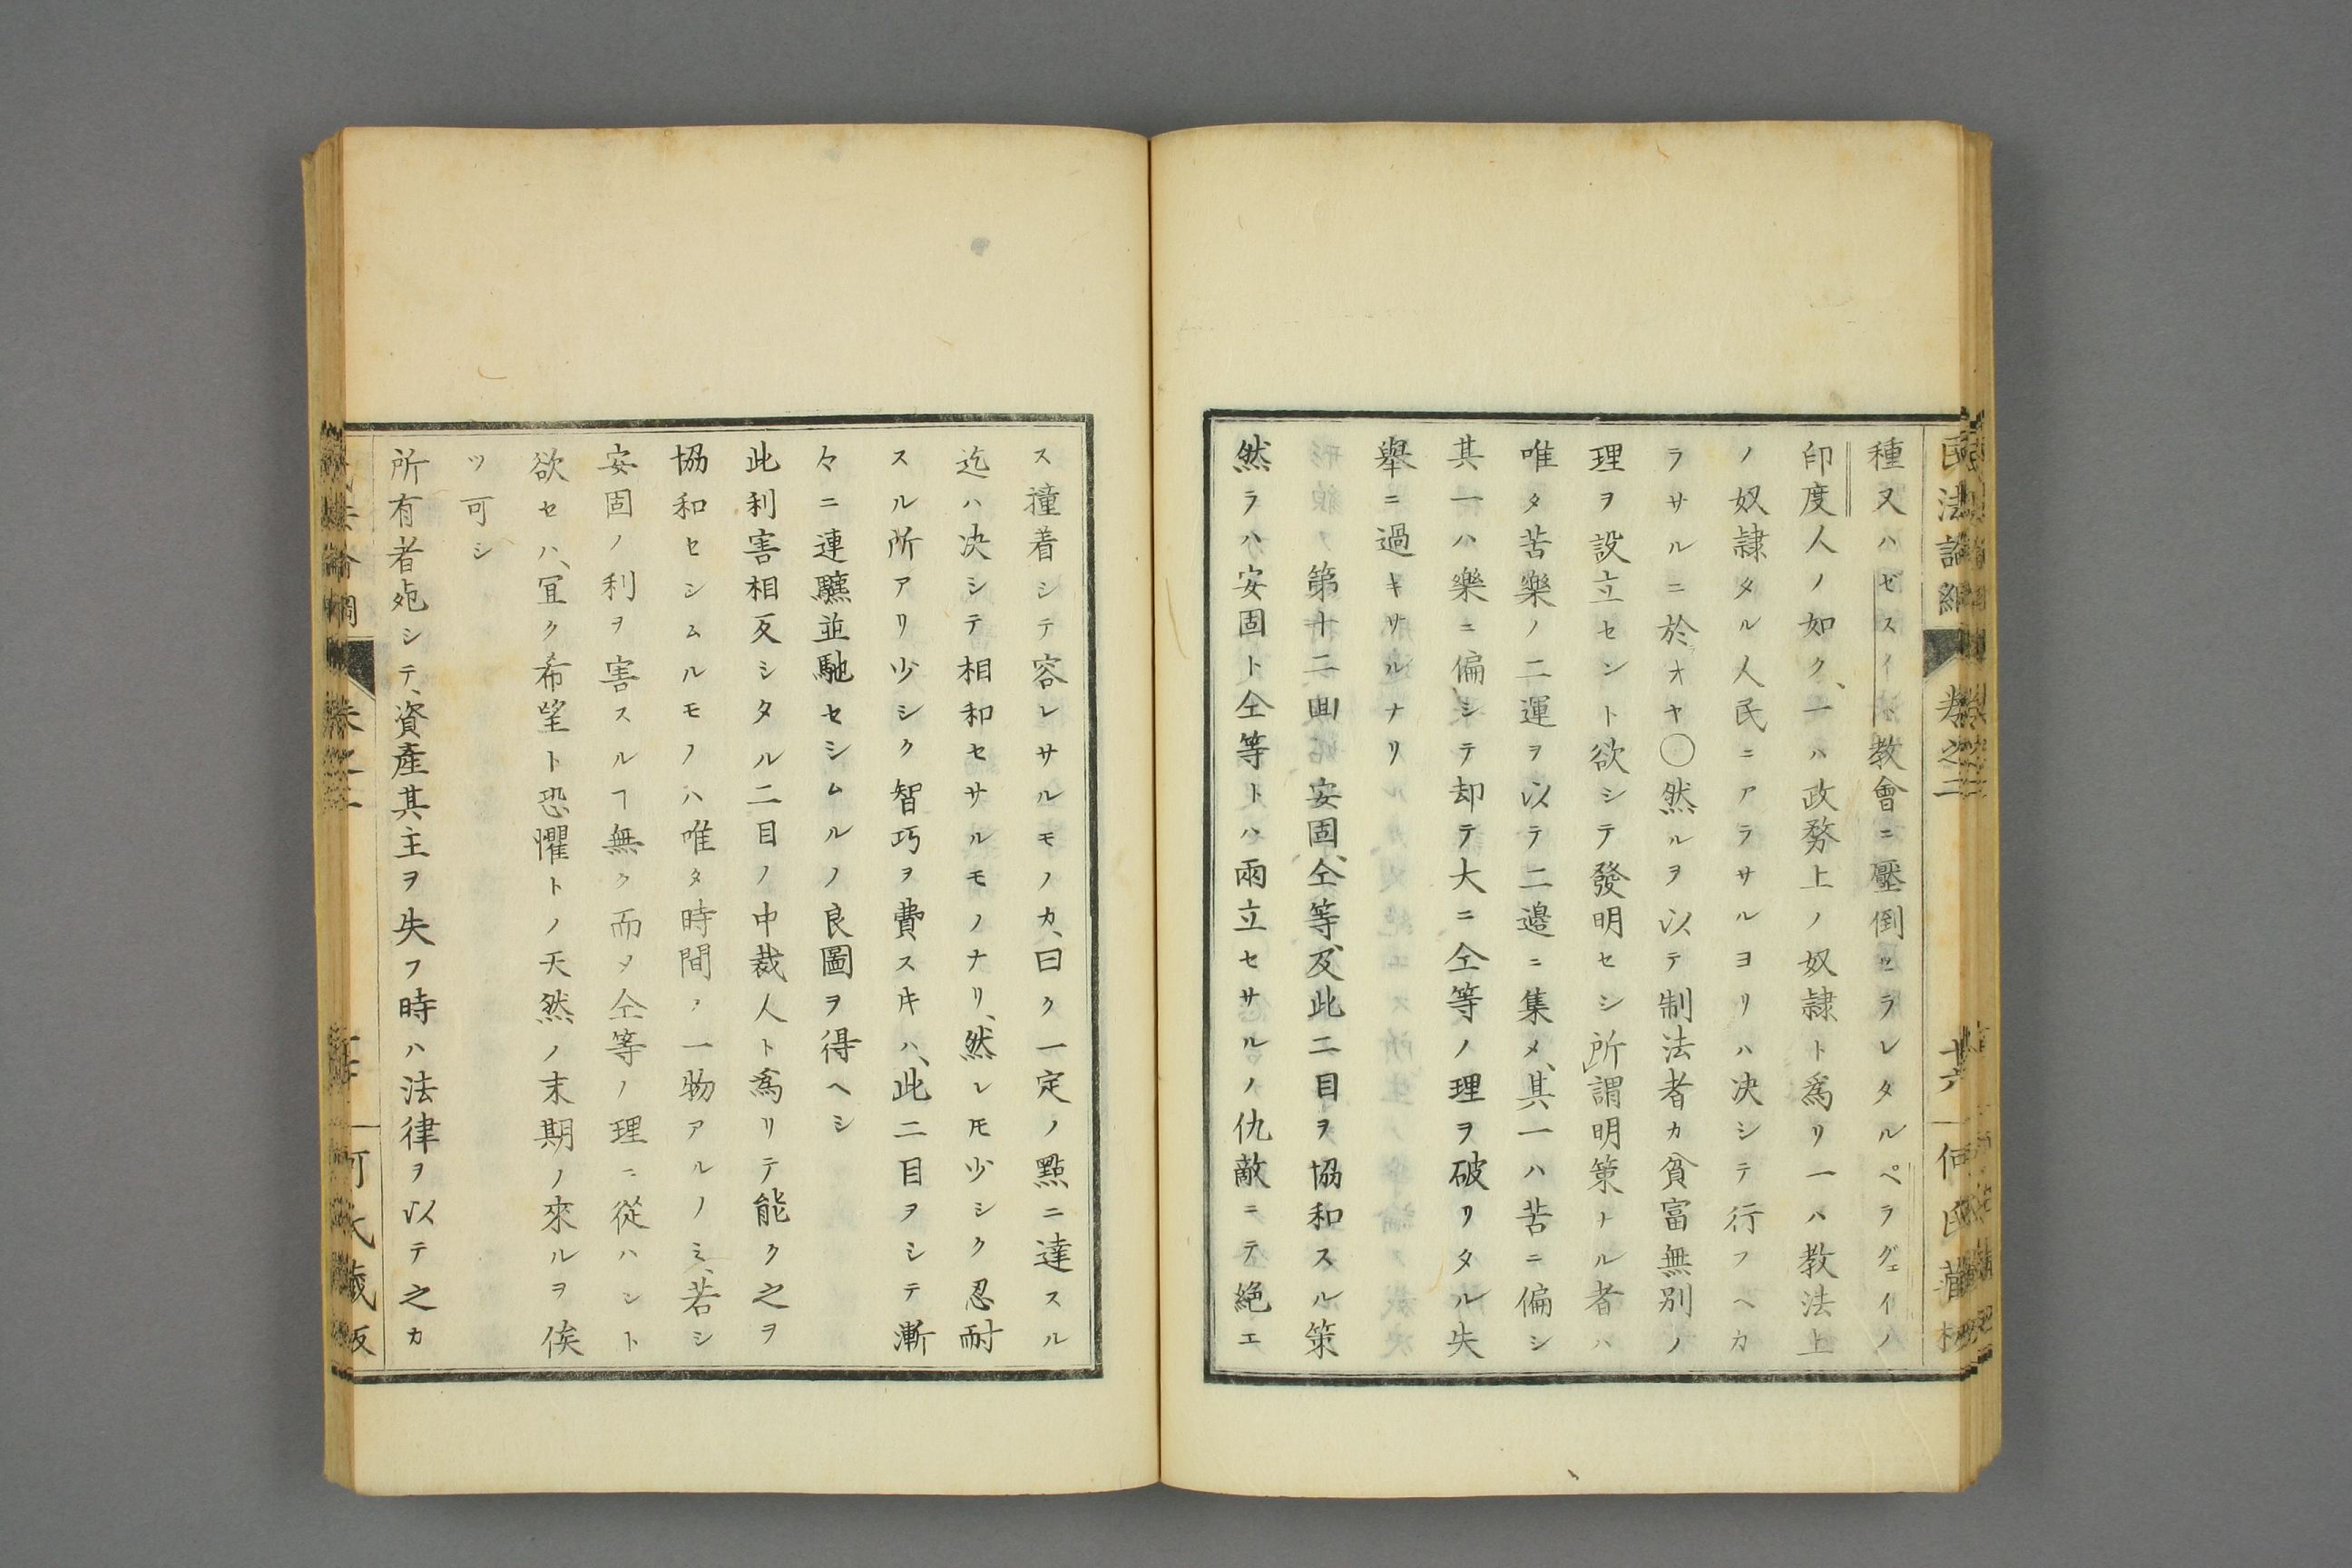 種又ハゼスイト教會ニ壓倒セラレタルペラグェイノ
印度人ノ如ク、一ハ政務上ノ奴隷ト爲リ一ハ教法上
ノ奴隷タル人民ニアラサルヨリハ決シテ行フヘカ
ラサルニ於オヤ〇然ルヲ以テ制法者カ貧富無別ノ
理ヲ設立セント欲シテ發明セシ所謂明策ナル者ハ
唯タ苦樂ノ二運ヲ以テ二邉ニ集メ、其一ハ苦ニ偏シ
其一ハ樂ニ偏シテ却テ大ニ仝等ノ理ヲ破リタル失
舉ニ過キサルナリ
第十二囬 安固、仝等、及此二目ヲ協和スル策
然ラハ安固ト仝等トハ兩立セサルノ仇敵ニテ絶エ
ス撞着シテ容レサルモノカ、曰ク一定ノ點ニ達スル
迄ハ決シテ相和セサルモノナリ、然レ𪜈少シク忍耐
スル所アリ少シク智巧ヲ費スキハ、此二目ヲシテ漸
々ニ連驫並馳セシムルノ良圖ヲ得ヘシ
此利害相反シタル二目ノ中裁人ト爲リテ能ク之ヲ
協和セシムルモノハ唯タ時間ノ一物アルノミ、若シ
安固ノ利ヲ害スルヿ無ク而メ仝等ノ理ニ從ハント
欲セハ、冝ク希望ト恐懼トノ天然ノ末期ノ來ルヲ俟
ツ可シ
所有者死シテ、資產其主ヲ失フ時ハ法律ヲ以テ之カ
卷之二
十六
何氏藏板